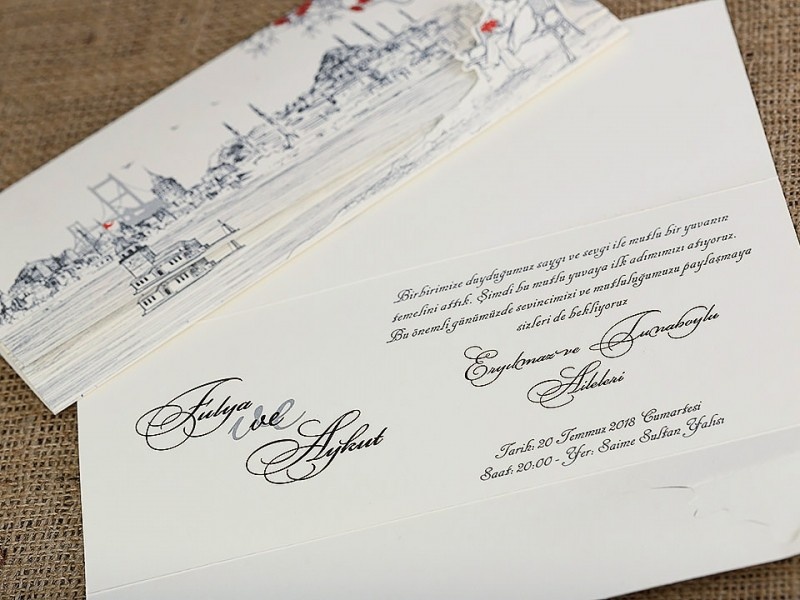 Birbirimize duyduğumuz saygı ve sevgi ile mutlu bir yuvanın
temelini attık. Şimdi bu mutlu yuvaya ilk adımımızı atıyoruz.
Bu önemli günümüzde sevincimizi ve mutluluğumuzu paylaşmaya
sizleri de bekliyoruz
Eryılmaz ve Tunaboylu
Aileleri
Fulya
ve ve
Aykut
Tarih: 20 Temmuz 2018 Cumartesi
Saat: 20:00 - Yer: Saime Sultan Yalısı